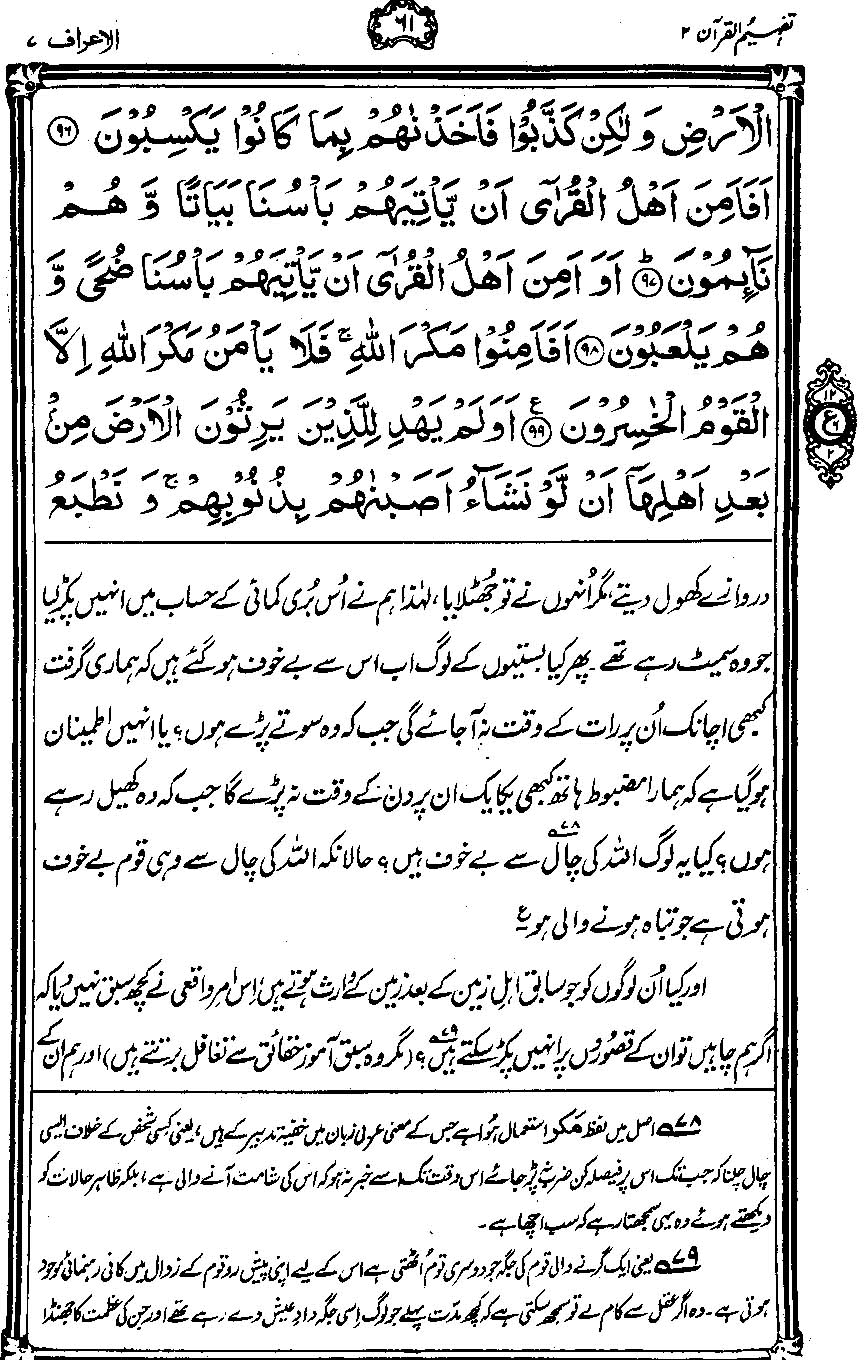 تفہیم القرآن ۲
۶۱
الاعراف ۷
الْاَرْضِ وَلٰكِنْ كَذَّبُوْا فَاَخَذْنٰهُمْ بِمَا كَانُوْا يَكْسِبُوْنَ ۹۶
اَفَاَمِنَ اَهْلُ الْقُرٰٓى اَنْ يَّاْتِيَهُمْ بَاْسُنَا بَيَاتًا وَّ هُمْ
نَآئِمُوْنَ ۹۷ اَوَ اَمِنَ اَهْلُ الْقُرٰٓى اَنْ يَّاْتِيَهُمْ بَاْسُنَا ضُحًى وَّ
هُمْ يَلْعَبُوْنَ ۹۸ اَفَاَمِنُوْا مَكْرَ اللّٰهِ ۚ فَلَا يَاْمَنُ مَكْرَ اللّٰهِ اِلَّا
الْقَوْمُ الْخٰسِرُوْنَ ۹۹ ع اَوَلَمْ يَهْدِ لِلَّذِيْنَ يَرِثُوْنَ الْاَرْضَ مِنْۢ
بَعْدِ اَهْلِهَآ اَنْ لَّوْ نَشَآءُ اَصَبْنٰهُمْ بِذُنُوْبِهِمْ ۚ وَ نَطْبَعُ
۱۲
ع
۶
۲
دروازے کھول دیتے، مگر اُنہوں نے تو جھٹلایا، لہٰذا ہم نے اُس بُری کمائی کے حساب میں انہیں پکڑ لیا
جو وہ سمیٹ رہے تھے۔ پھر کیا بستیوں کے لوگ اب اس سے بے خوف ہو گئے ہیں کہ ہماری گرفت
کبھی اچانک اُن پر رات کے وقت نہ آ جائے گی جب کہ وہ سوتے پڑے ہوں؟ یا انہیں اطمینان
ہو گیا ہے کہ ہمارا مضبوط ہاتھ کبھی یکایک ان پر دن کے وقت نہ پڑے گا جب کہ وہ کھیل رہے
ہوں؟ کیا یہ لوگ اللہ کی چال ۷۸ سے بے خوف ہیں؟ حالانکہ اللہ کی چال سے وہی قوم بے خوف
ہوتی ہے جو تباہ ہونے والی ہو ع
اور کیا اُن لوگوں کو جو سابق اہلِ زمین کے بعد زمین کے وارث ہوتے ہیں، اِس امرِ واقعی نے کچھ سبق نہیں دیا کہ
اگر ہم چاہیں تو ان کے قصوروں پر انہیں پکڑ سکتے ہیں ۷۹؟ (مگر وہ سبق آموز حقائق سے تغافل برتتے ہیں) اور ہم ان کے
۷۸ اصل میں لفظ مَکر استعمال ہُوا ہے جس کے معنی عربی زبان میں خفیہ تدبیر کے ہیں، یعنی کسی شخص کے خلاف ایسی
چال چلنا کہ جب تک اس پر فیصلہ کن ضرب نہ پڑ جائے اس وقت تک اسے خبر نہ ہو کہ اس کی شامت آنے والی ہے، بلکہ ظاہر حالات کو
دیکھتے ہوئے وہ یہی سمجھتا رہے کہ سب اچھا ہے۔
۷۹ یعنی ایک گرنے والی قوم کی جگہ جو دوسری قوم اُٹھتی ہے اس کے لیے اپنی پیش رو قوم کے زوال میں کافی رہنمائی موجود
ہوتی ہے۔ وہ اگر عقل سے کام لے تو سمجھ سکتی ہے کہ کچھ مدّت پہلے جو لوگ اِسی جگہ دادِ عیش دے رہے تھے اور جن کی عظمت کا جھنڈا